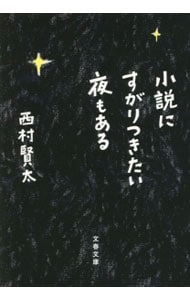 小説に
すがりつきたい
夜もある
西村賢太
文春文庫